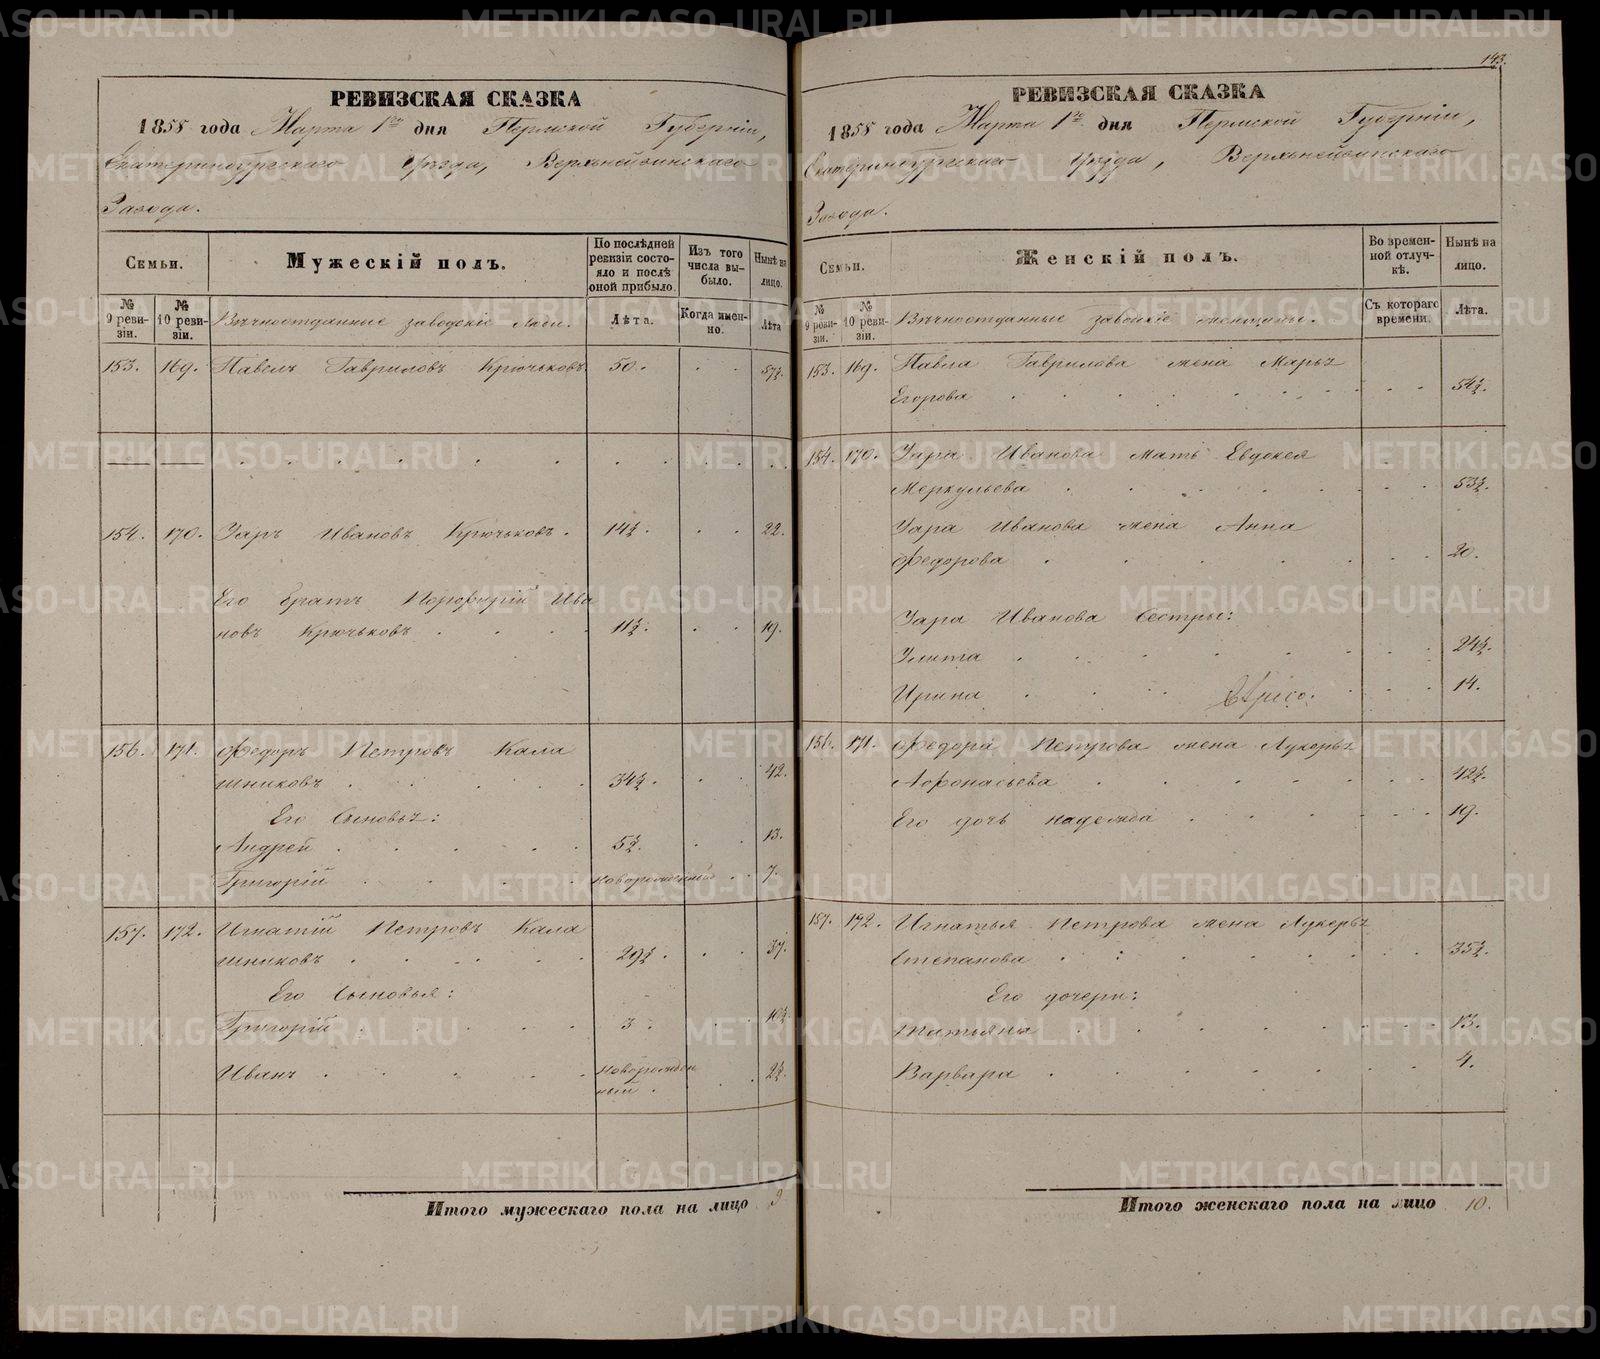 143.
РЕВИЗСКАЯ СКАЗКА
1858 года Марта 1го дня Пермской Губерніи,
Екатеринбургскаго Уѣзда, Верхнейвинскаго
Завода.
Семьи.
Мужескій полъ.
По послѣдней ревизіи состояло и послѣ оной прибыло.
Изъ того числа выбыло.
Нынѣ на лицо.
№ 9 ревизіи.
№ 10 ревизіи.
Вѣчноотданные заводскіе люди.
Лѣта.
Когда именно.
Лѣта
153. 169. Павелъ Гавриловъ Крючьковъ 50. 57½.
154. 170. Уаръ Ивановъ Крючьковъ. 14½. 22.
Его братъ Порфирій Ива
новъ Крючьковъ 11½. 19.
156. 171. Федоръ Петровъ Кала
шниковъ 34½. 42.
Его Сыновья:
Андрей 5½. 13.
Григорій новорожденный 7.
157. 172. Игнатій Петровъ Кала
шниковъ 29½. 37.
Его Сыновья:
Григорій 3. 10½.
Иванъ новорожден
ный. 2½.
Итого мужескаго пола на лицо 9
РЕВИЗСКАЯ СКАЗКА
1858 года Марта 1го дня Пермской Губерніи,
Екатеринбургскаго Уѣзда, Верхнейвинскаго
Завода.
Семьи.
Женскій полъ.
Во временной отлучкѣ.
Нынѣ на лицо.
№ 9 ревизіи.
№ 10 ревизіи.
Вѣчноотданные завоскіе женщины.
Съ котораго времени.
Лѣта.
153. 169. Павла Гаврилова жена Марья
Егорова 54½.
154. 170. Уара Иванова мать Евдокея
Меркульева 53½.
Уара Иванова жена Анна
Федорова 20.
Уара Иванова Сестры:
Улита 24½.
Ирина 14.
156. 171. Федора Петрова жена Лукерья
Афонасьева 42½.
Его дочь надежда 19.
157. 172. Игнатья Петрова жена Лукерья
Степанова 35½.
Его дочери:
татьяна 13.
Варвара 4.
Итого женскаго пола на лицо 10.
METRIKI.GASO-URAL.RU